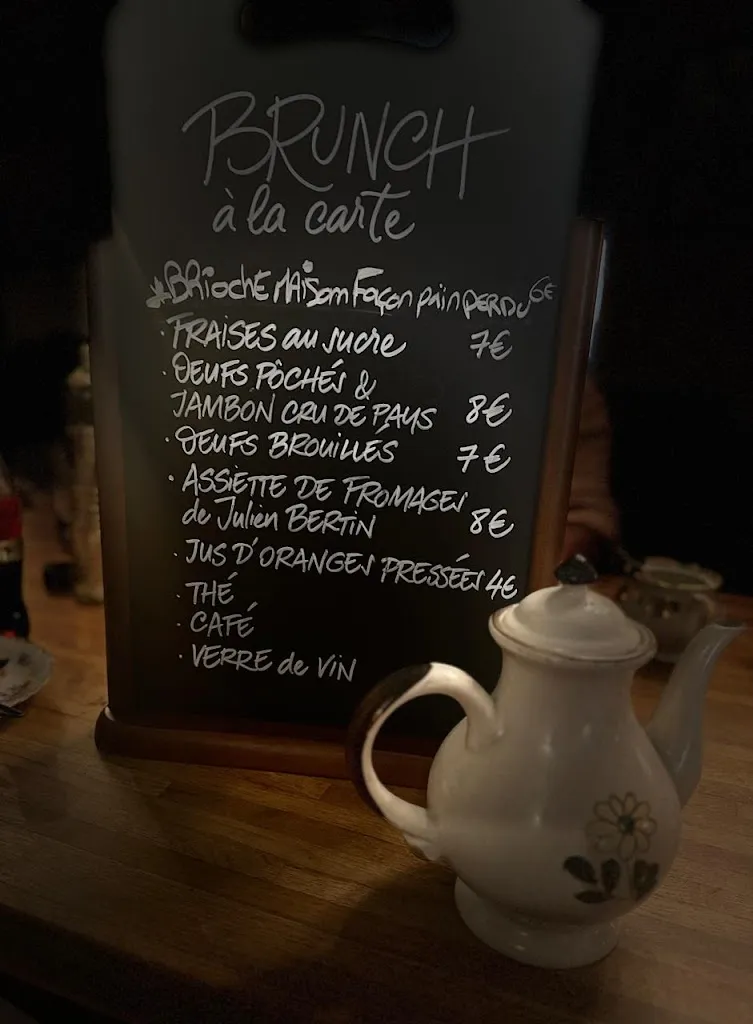 BRUNCH
à la carte
*BRiochE MAiSon Façon pain PERDU 6€
· FRAISES au sucre 7€
· OEUFS PÔCHÉS &
JAMBON CRU DE PAYS 8€
· OEUFS BROUILLÉS 7€
· ASSIETTE DE FROMAGES
de Julien BERTIN 8€
· JUS D'ORANGES PRESSÉES 4€
· THÉ
· CAFÉ
· VERRE de VIN